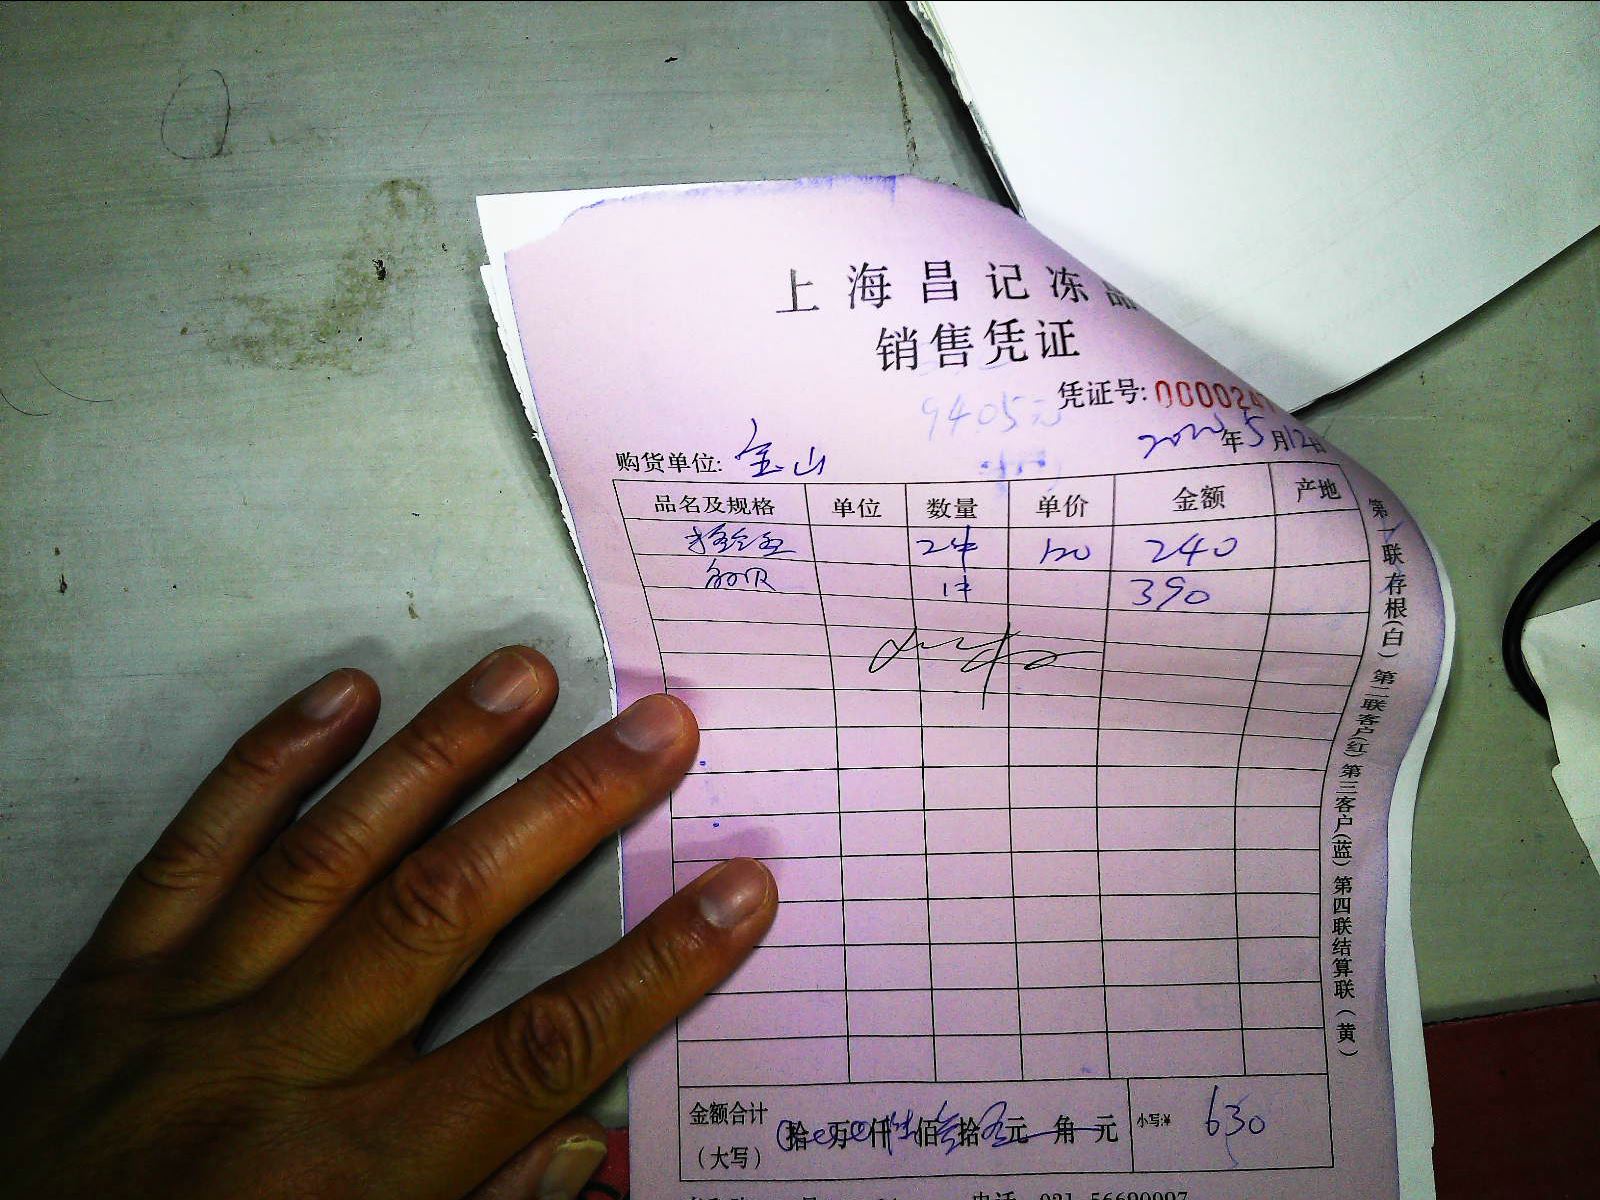 上海昌记冻品
销售凭证
凭证号: 000024
9405元
年5月12日
购货单位: 宝山
品名及规格 单位 数量 单价 金额 产地
2件 120 240
1件 390
第一联存根(白) 第二联客户(红) 第三客户(蓝) 第四联结算联(黄)
金额合计 拾 万 仟 佰 拾 元 角 元 小写:¥ 630
(大写)
电话 021-56690997